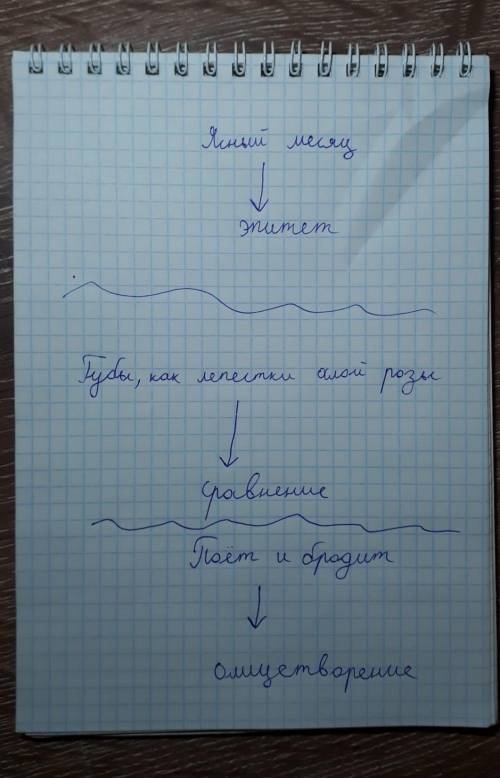 Ясный месяц
эпитет
Губы, как лепестки алой розы
сравнение
Поёт и бродит
олицетворение